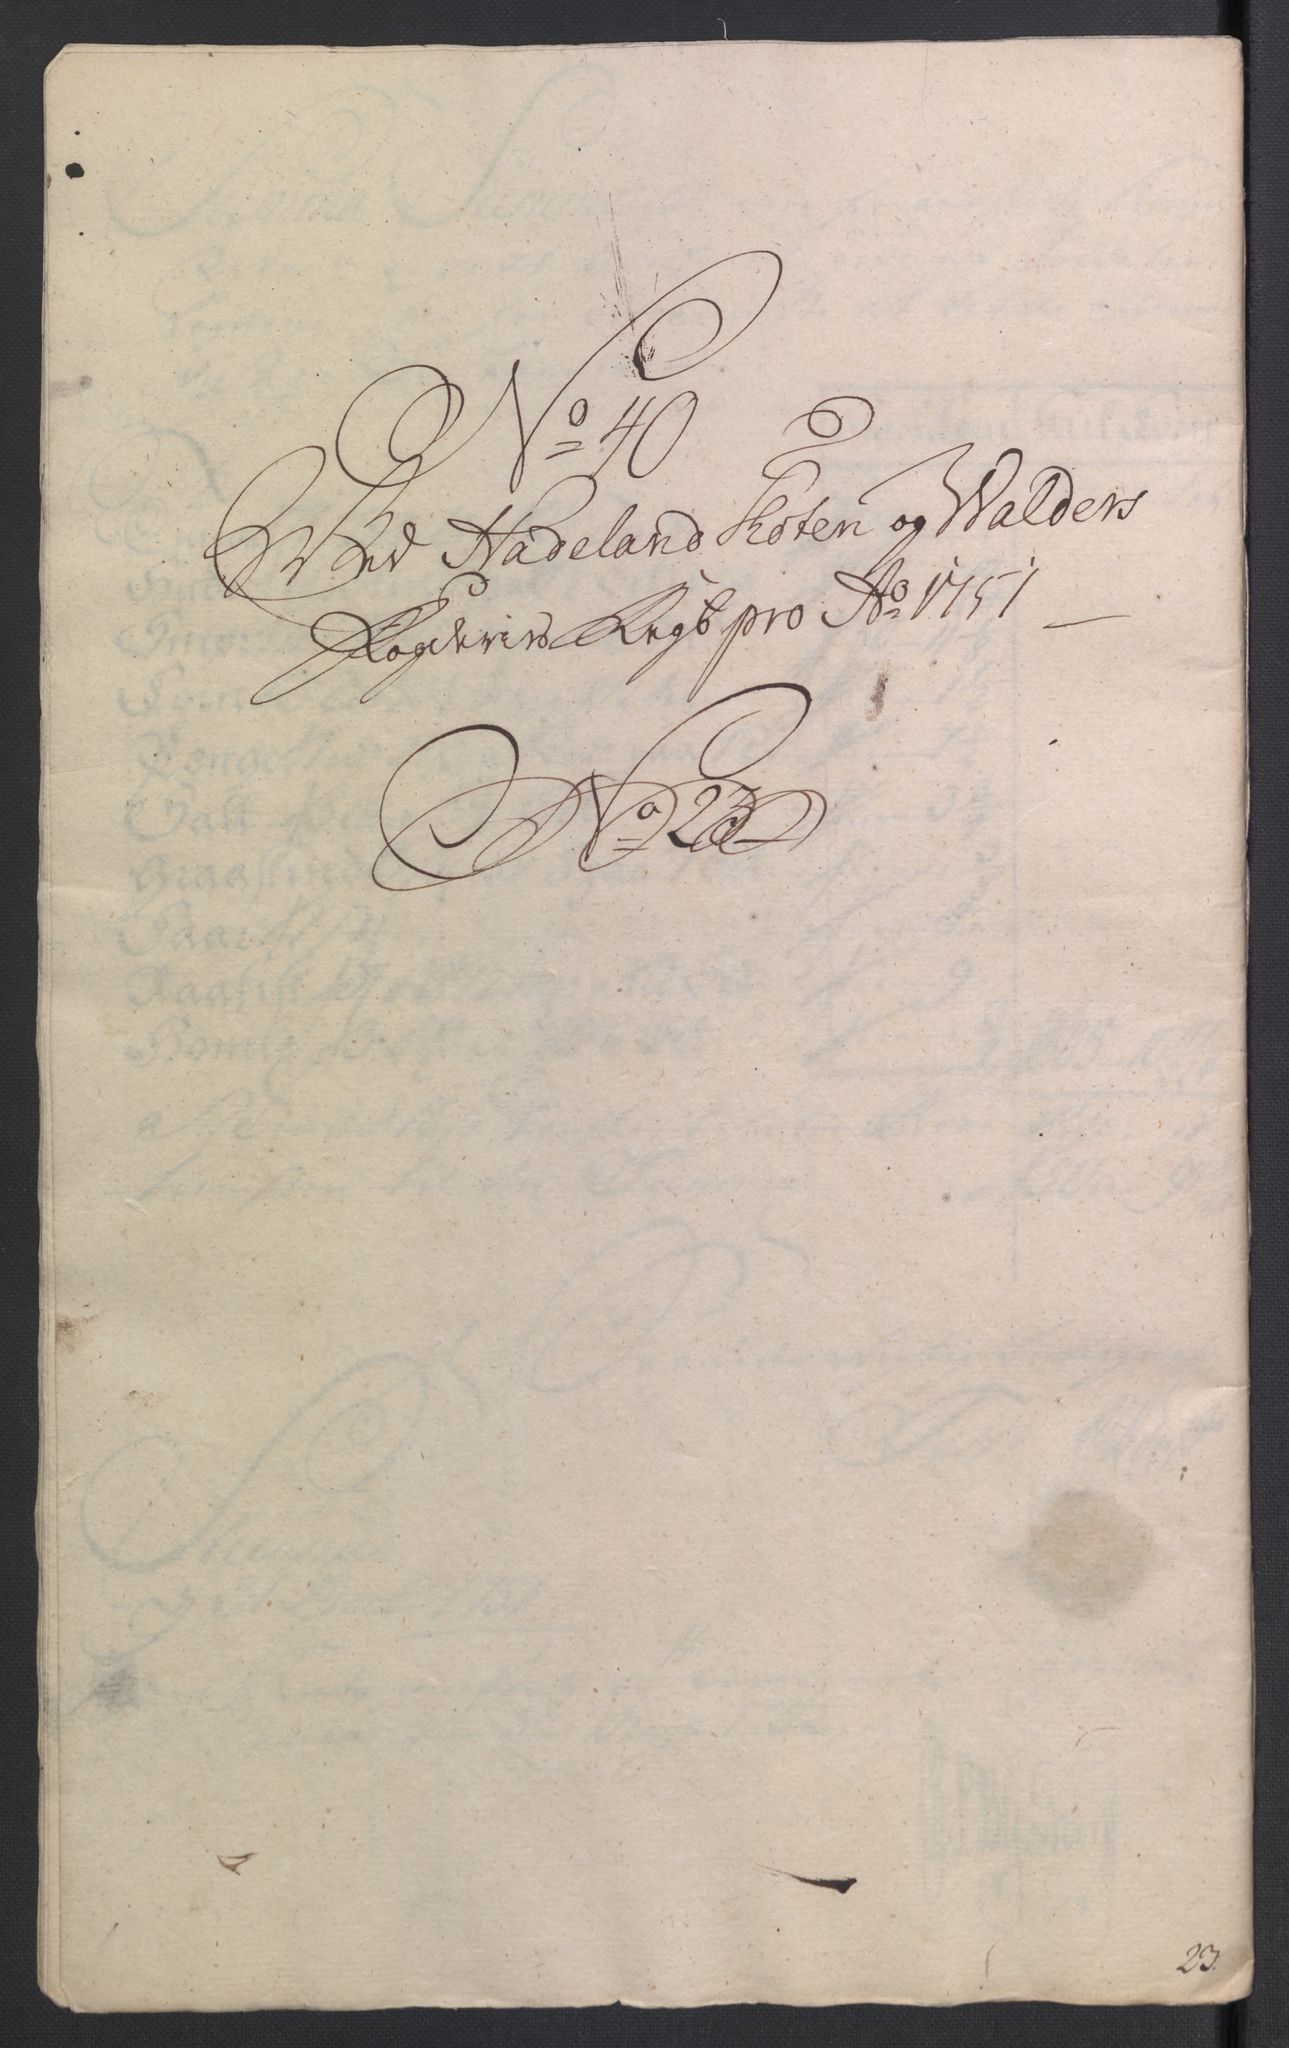 No 40
Ved Hadeland Thoten og Walders
Fogderies Regsb pro Ao 1751
No 23
23.